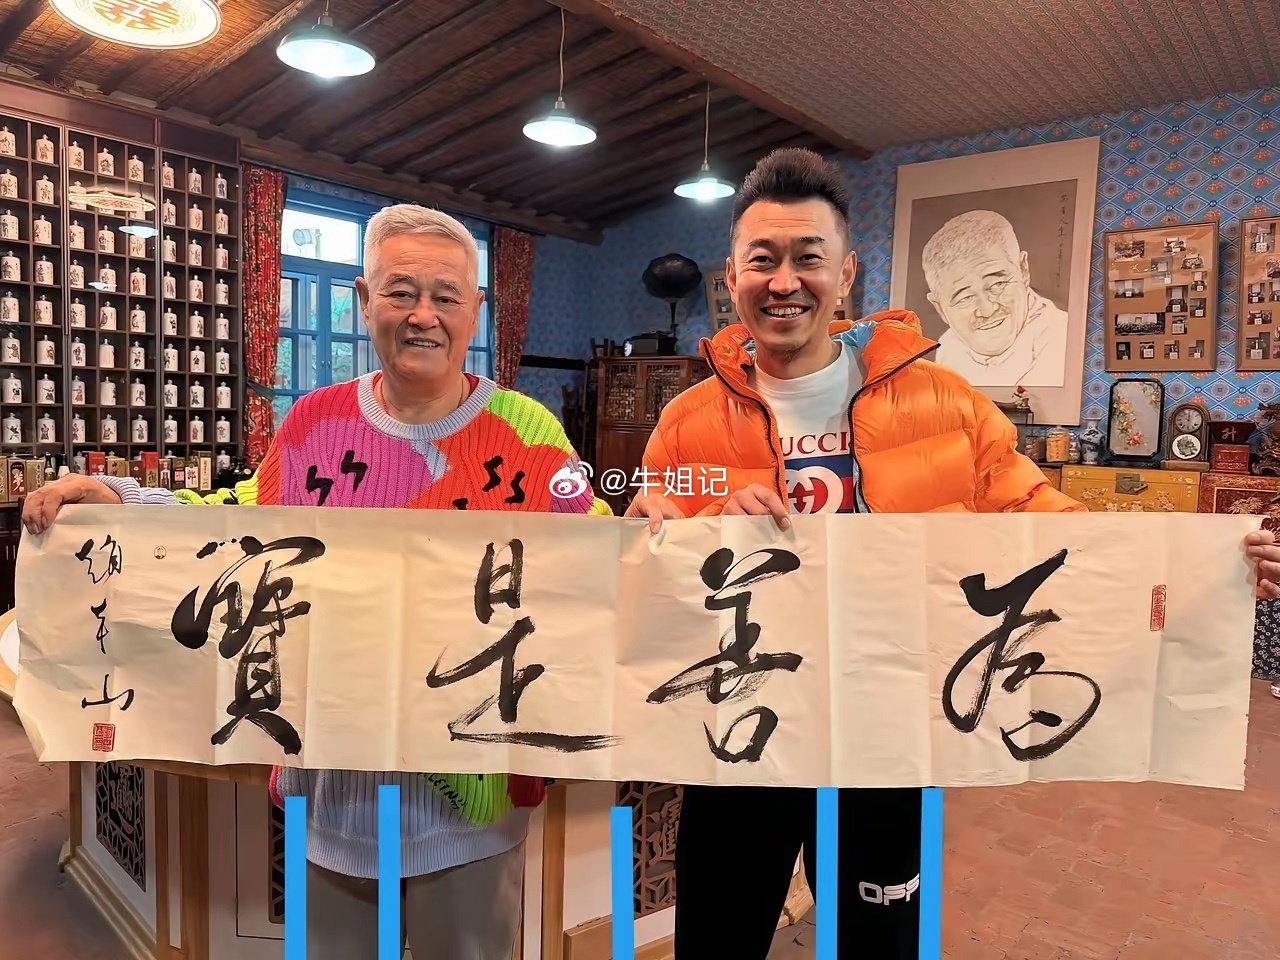 為善是寶
趙本山
@牛姐记
GUCCI
OFF
升